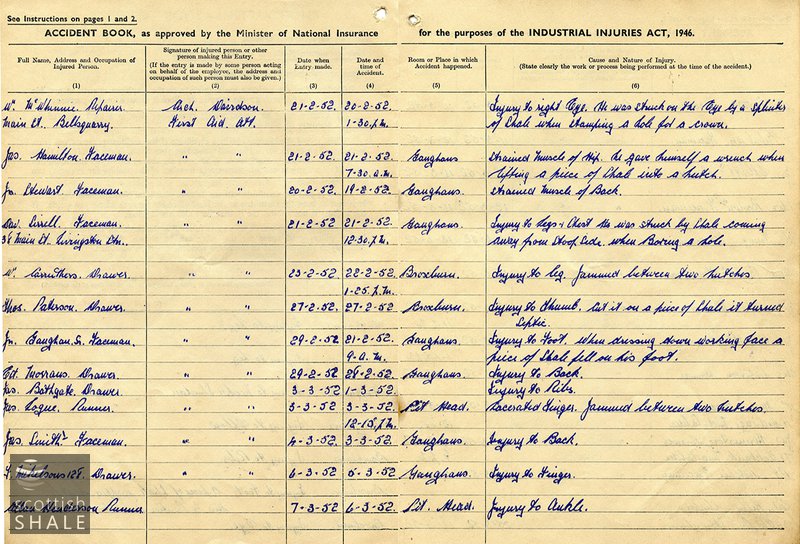 See Instructions on pages 1 and 2.
ACCIDENT BOOK, as approved by the Minister of National Insurance for the purposes of the INDUSTRIAL INJURIES ACT, 1946.
Full Name, Address and Occupation of Injured Person. (1)
Signature of injured person or other person making this Entry. (If the entry is made by some person acting on behalf of the employee, the address and occupation of such person must also be given.) (2)
Date when Entry made. (3)
Date and time of Accident. (4)
Room or Place in which Accident happened. (5)
Cause and Nature of Injury. (State clearly the work or process being performed at the time of the accident.) (6)
Wm Repairer Arch. Davidson 21-2-52 20-2-52 Injury to right Eye. He was struck on the Eye by a splinter
Main St. Bellsquarry. First Aid Att. 1-30 p.m. of Shale when stamping a hole for a crown.
Jas. Hamilton. Faceman. " " 21-2-52. 21-2-52. Gaughans Strained Muscle of Hip. He gave himself a wrench when
7-30. a.m. lifting a piece of Shale into a hutch.
Jn. Stewart Faceman. " " 20-2-52. 19-2-52. Gaughans. Strained Muscle of Back.
Dav. Faceman. " " 21-2-52. 21-2-52. Gaughans. Injury to Legs & Chest He was struck by Shale coming
Main St. Livingston Stn. 12-30. p.m. away from Stoop Side, when Boring a hole.
W. Carruthers. Drawer " " 23-2-52. 22-2-52. Broxburn. Injury to leg. Jammed between two hutches
1-25. p.m.
Thos. Paterson. Drawer. " " 27-2-52. 27-2-52. Broxburn. Injury to thumb. Cut it on a piece of Shale it turned
Septic.
Jn. Gaughan. Sr. Faceman. " " 29-2-52. 21-2-52. Gaughans. Injury to Foot. When dressing down working face a
9-a.m. piece of Shale fell on his foot.
Drawer " " 29-2-52 29-2-52. Gaughans. Injury to Back.
Jas. Bathgate. Drawer " " 3-3-52 1-3-52. Injury to Ribs.
Jas. Logue. Runner. " " 3-3-52. 3-3-52. Pit Head. Lacerated Finger. Jammed between two hutches.
12-15. p.m.
Jas. Smith Faceman. " " 4-3-52. 3-3-52. Gaughans. Injury to Back.
Drawer. " " 6-3-52. 5-3-52. Gaughans. Injury to Finger.
Henderson Runner " " 7-3-52 6-3-52. Pit. Head. Injury to Ankle.
Scottish
SHALE